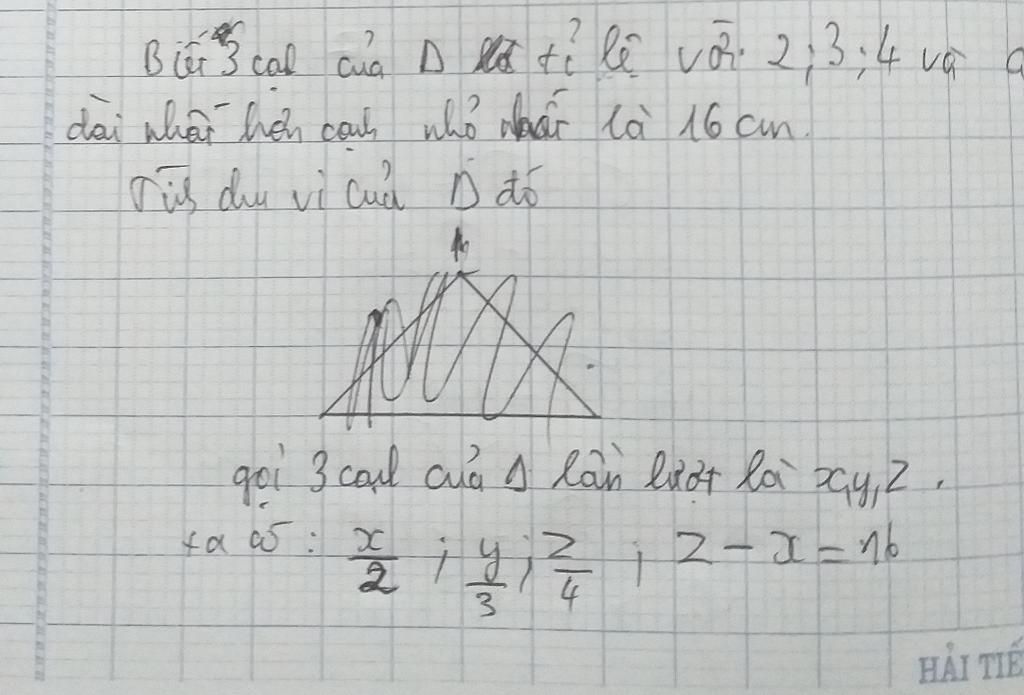 Biết 3 cạh của Δ tỉ lệ với 2; 3; 4 và
dài nhất hơn cạnh nhỏ nhất là 16 cm.
Tíh chu vi của Δ đó
gọi 3 cạh của Δ lần lượt là x,y,z.
ta có: x/2 ; y/3 ; z/4 ; z - x = 16
HẢI TIẾ